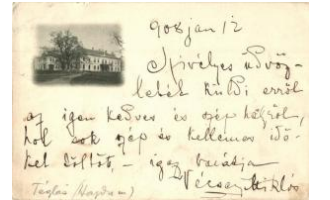 908 jan 12
Szivélyes üdvöz-
letét küldi erről
az igen kedves és szép helyről,
hol sok szép és kellemes idő-
ket töltött, - igaz barátja
Vécsey Miklós
Téglás (Hajdu m)